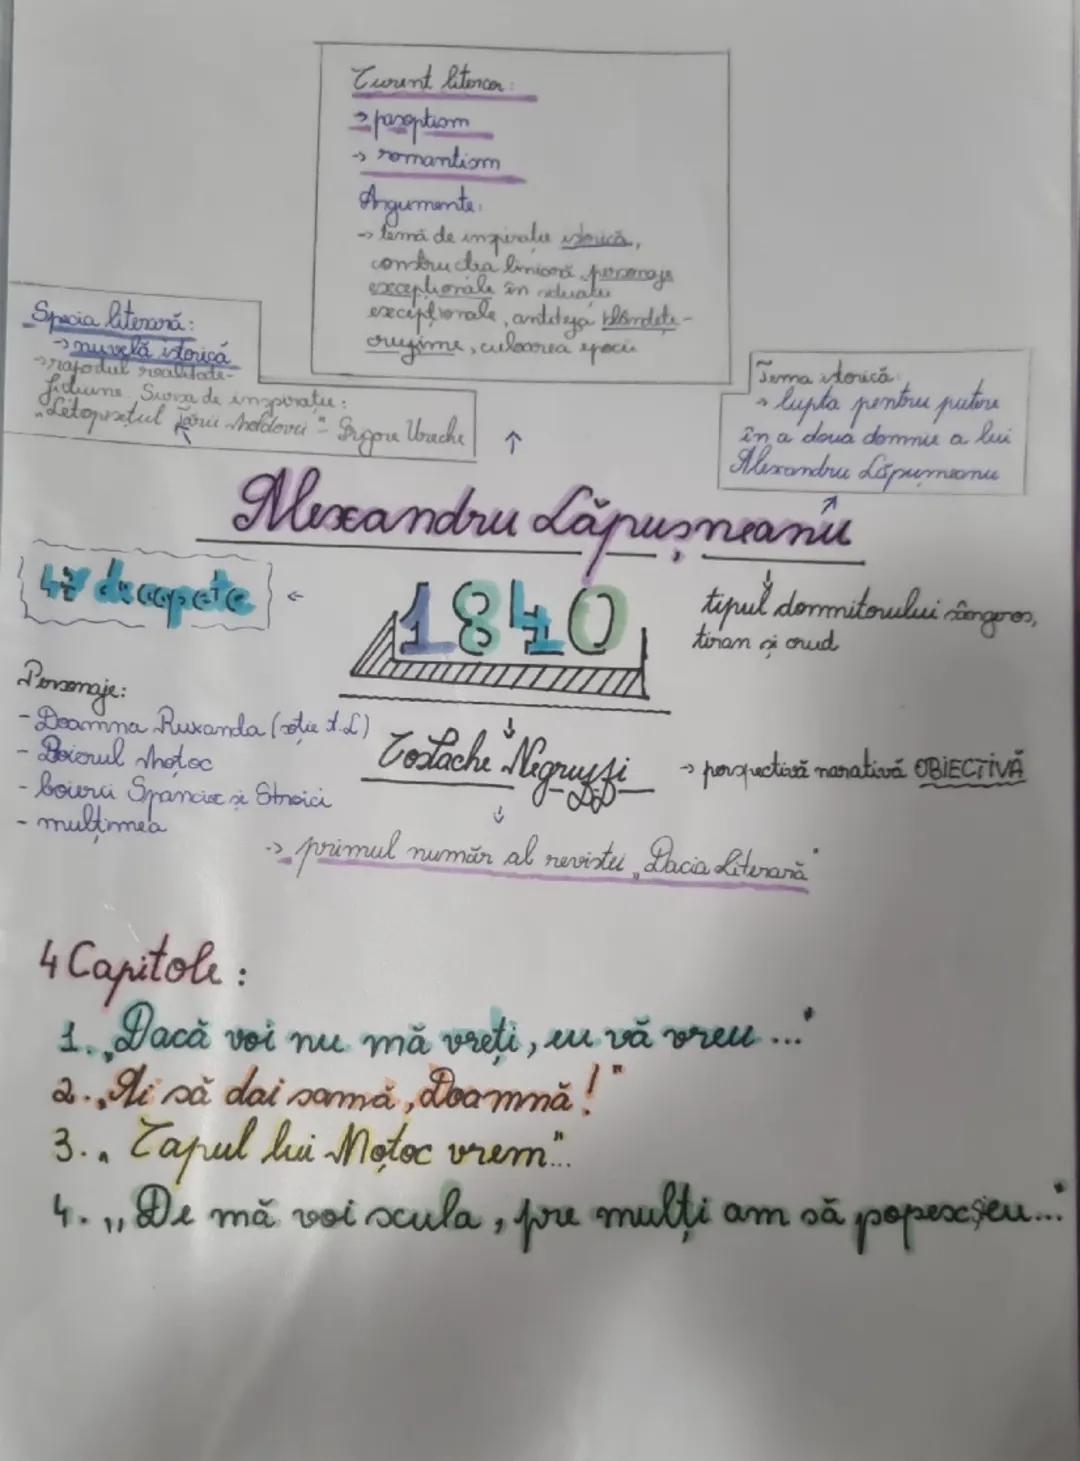 Curent literar:
→ pașoptism
→ romantism
Argumente:
→ temă de inspirație istorică,
construcția liniară, personaje
excepționale în situații
excepționale, antiteza blândețe-
cruzime, culoarea epocii
Specia literară:
→ nuvelă istorică
→ raportul realitate-
ficțiune, Sursa de inspirație:
"Letopisețul Țării Moldovei" - Grigore Ureche
Tema istorică:
→ lupta pentru putere
în a doua domnie a lui
Alexandru Lăpușneanu
Alexandru Lăpușneanu
47 de capete
1840
tipul domnitorului sângeros,
tiran și crud
Personaje:
- Doamna Ruxanda (soție A.L)
- Boierul Moțoc
- boierii Spancioc și Stroici
- mulțimea
Costache Negruzzi
→ perspectivă narativă OBIECTIVĂ
→ primul număr al revistei „Dacia Literară"
4 Capitole:
1. „Dacă voi nu mă vreți, eu vă vreu..."
2. „Ai să dai samă, Doamnă!"
3. „Capul lui Moțoc vrem"...
4. „De mă voi scula, pre mulți am să popesc și eu..."